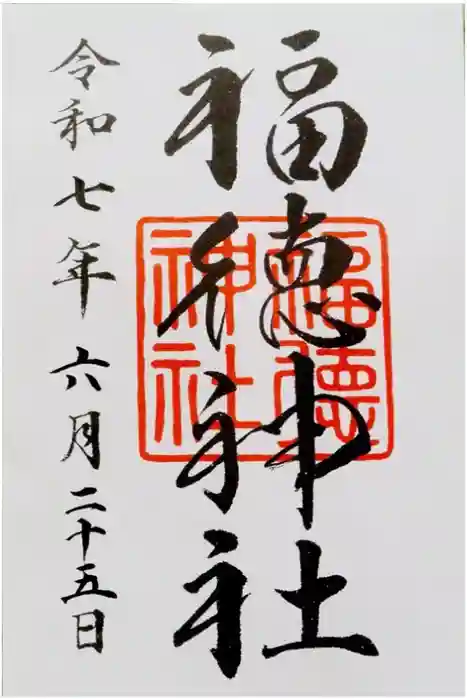 福徳神社
福徳神社
令和七年六月二十五日